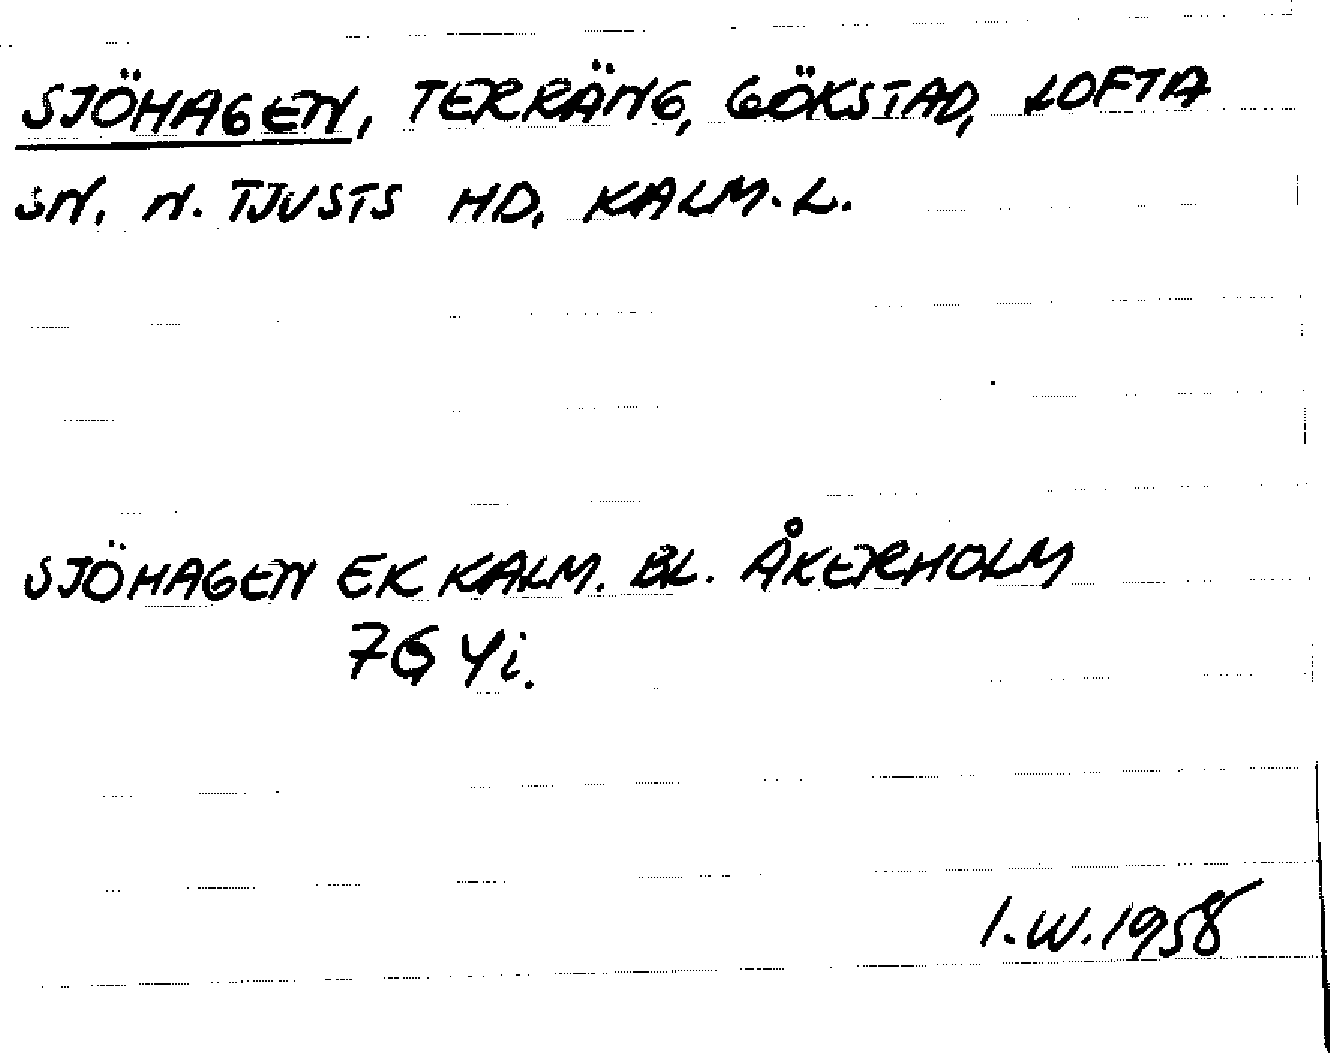 SJÖHAGEN, TERRÄNG, GÖKSTAD, LOFTA
SN. N. TJUSTS HD. KALM. L.
SJÖHAGEN EK KALM. BL. ÅKERHOLM
7G 4i.
I.W. 1958